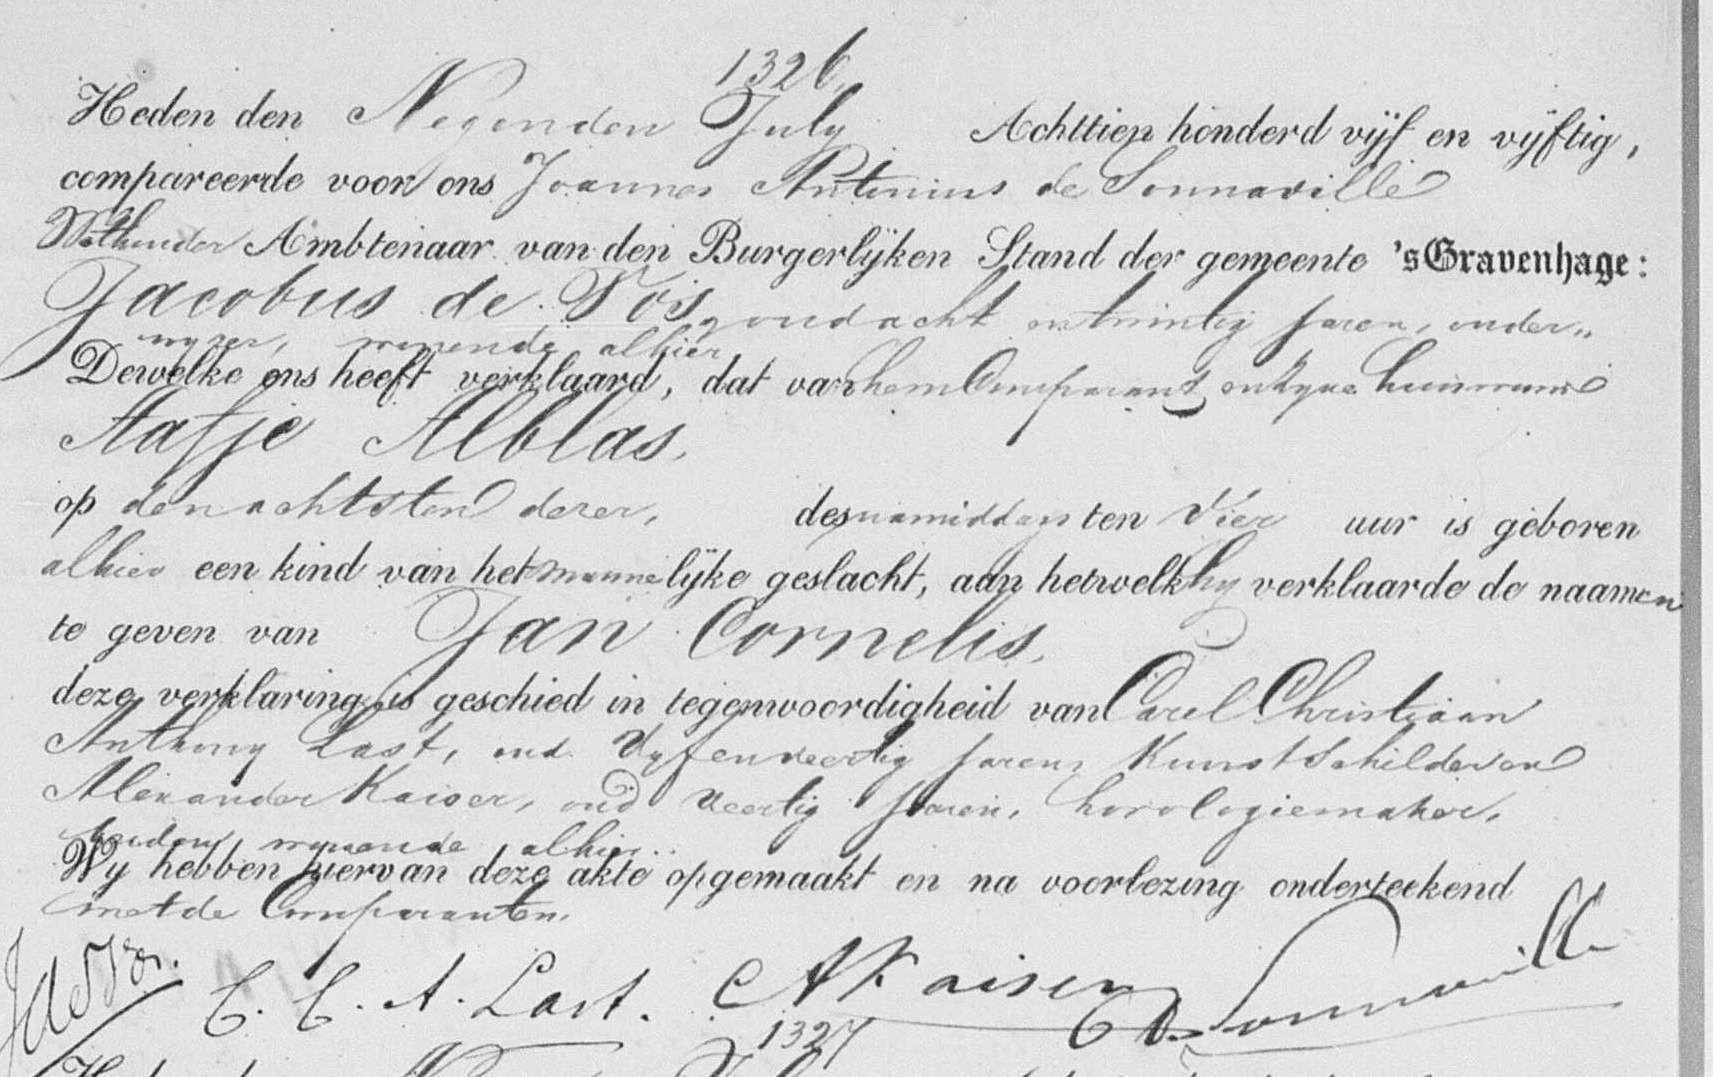 1326.
Heden den Negenden July Achttien honderd vijf en vijftig,
compareerde voor ons Joannes Antonius de Sonnaville
Wethouder Ambtenaar van den Burgerlijken Stand der gemeente 's Gravenhage:
Jacobus de Vos, oud acht en twintig jaren, onder„
wyzer, wonende alhier
Dewelke ons heeft verklaard, dat van hem Comparant en zyne huisvrouw
Aafje Alblas,
op den achtsten dezer, des namiddags ten Vier uur is geboren
alhier een kind van het mannelijke geslacht, aan hetwelk hy verklaarde de naamen
te geven van Jan Cornelis.
deze verklaring is geschied in tegenwoordigheid van Carel Christiaan
Anthony Last, oud Vyfenveertig jaren, Kunstschilder en
Alexander Kaiser, oud veertig jaren, horologiemaker,
beiden wonende alhier.
Wy hebben hiervan deze akte opgemaakt en na voorlezing onderteekend
met de Comparanten.
JdeVos.
C. C. A. Last.
A Kaiser
de Sonnaville
1327